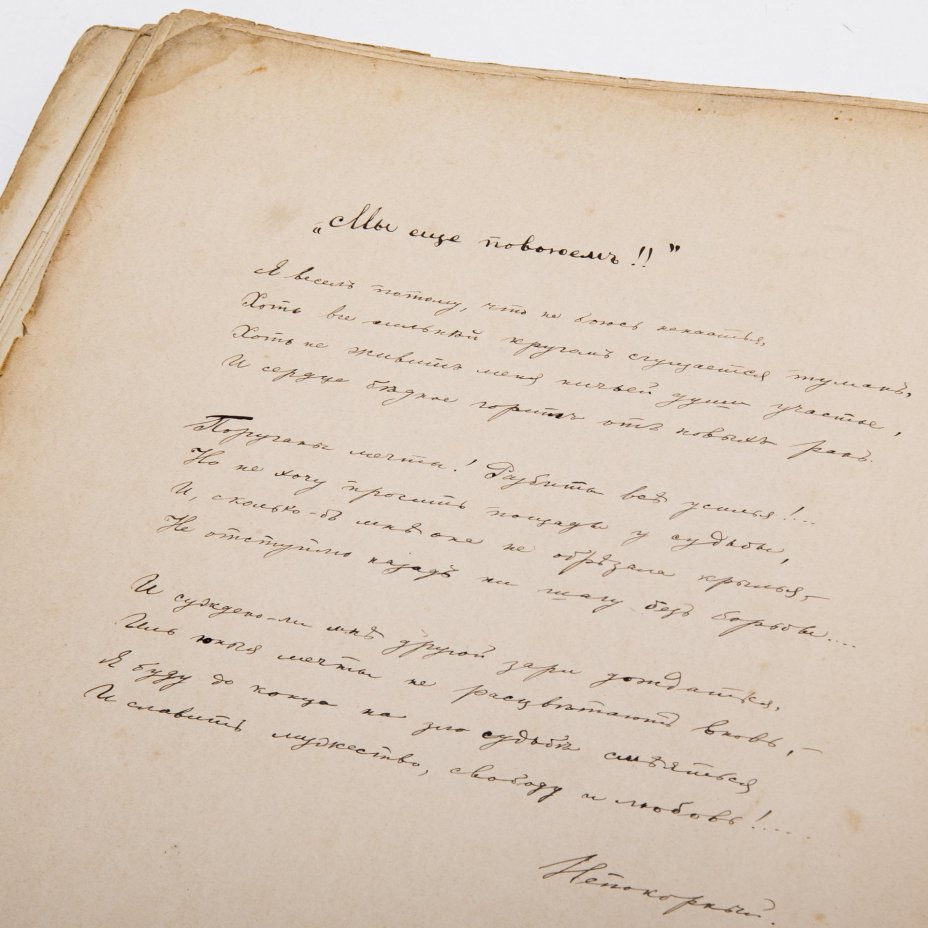 „Мы еще повоюемъ!!"
Я веселъ потому, что не боюсь ненастья,
Хоть все сильнѣй кругомъ сгущается туманъ,
Хоть не живитъ меня ничьей души участье,
И сердце бѣдное горитъ отъ новыхъ ранъ.
Поруганы мечты! Разбиты всѣ усилья!...
Но не хочу просить пощады у судьбы,
И, сколько-бъ мнѣ она не обрѣзала крылья,—
Не отступлю назадъ ни шагу безъ борьбы....
И суждено-ли мнѣ другой зари дождаться,
Иль юныя мечты не расцвѣтаютъ вновь,—
Я буду до конца на зло судьбѣ смѣяться
И славить мужество, свободу и любовь!......
Непокорный.